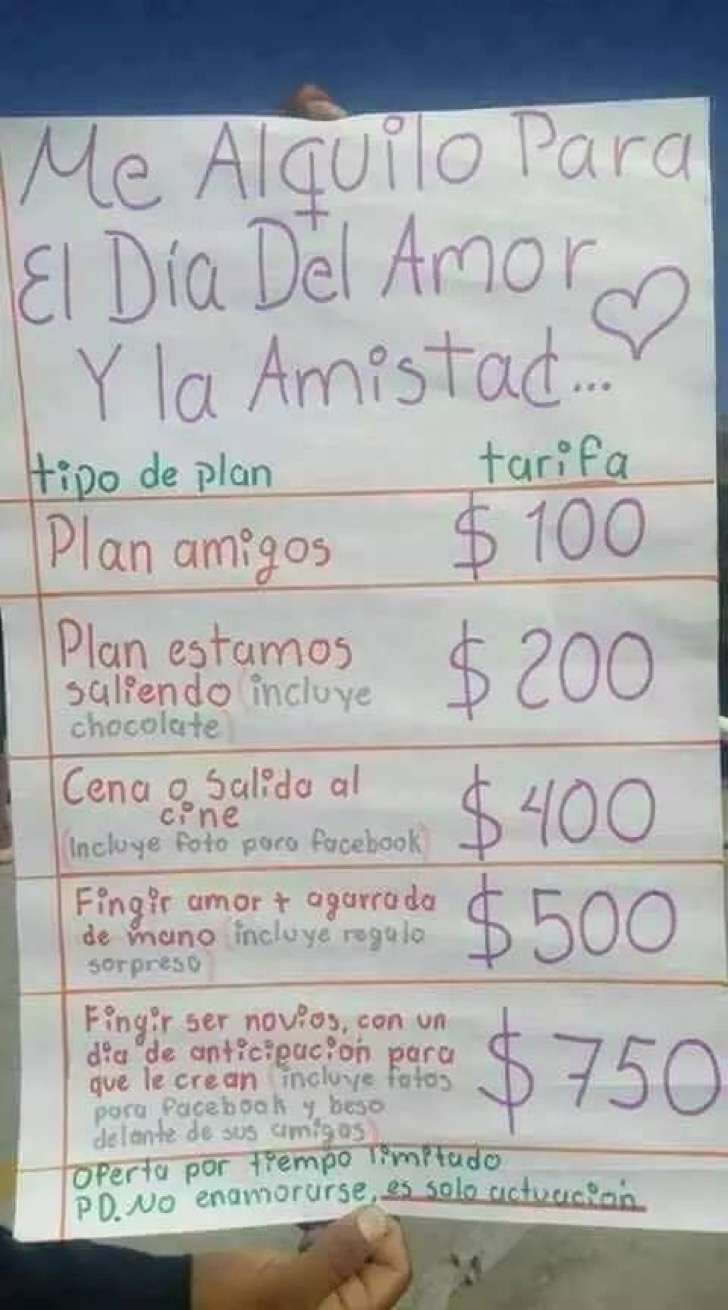 Me Alquilo Para
El Día Del Amor
Y la Amistad...
tipo de plan tarifa
Plan amigos $100
Plan estamos
saliendo (incluye
chocolate) $200
Cena o Salida al
cine
(Incluye foto para facebook) $400
Fingir amor + agarrada
de mano (incluye regalo
sorpresa) $500
Fingir ser novios, con un
día de anticipación para
que le crean (incluye fotos
para facebook y beso
delante de sus amigos) $750
Oferta por tiempo limitado
PD. No enamorarse, es solo actuación